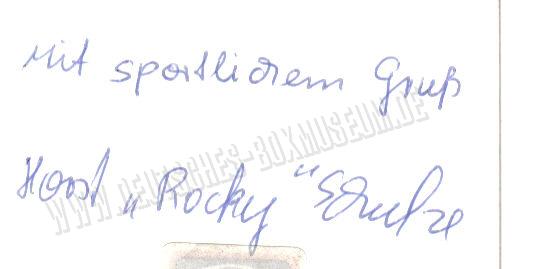 Mit sportlichem Gruß
Horst „Rocky“ Schulze
WWW.DEUTSCHES-BOXMUSEUM.DE